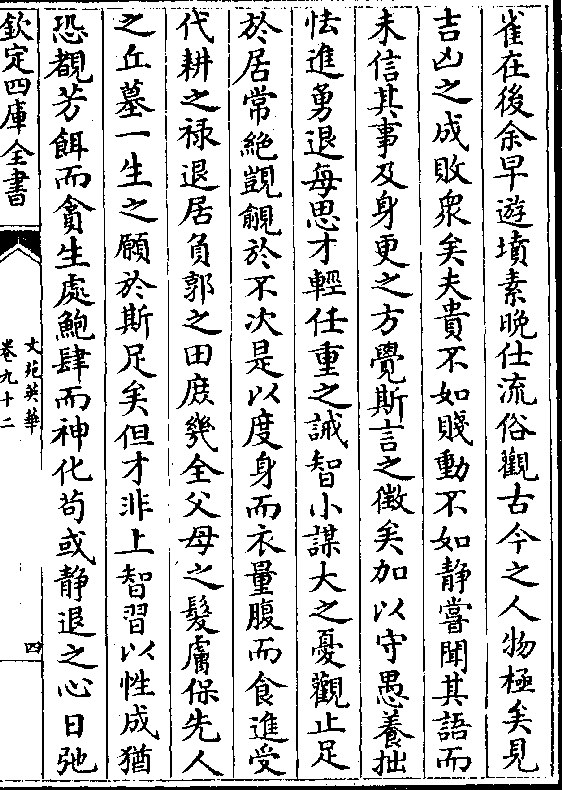 雀在後余早遊墳素晚仕流俗觀古今之人物極矣見
吉凶之成敗衆矣夫貴不如賤動不如靜嘗聞其語而
未信其事及身更之方覺斯言之徵矣加以守愚養拙
怯進勇退每思才輕任重之誡智小謀大之憂觀止足
於居常絶覬覦於不次是以度身而衣量腹而食進受
代耕之禄退居負郭之田庶幾全父母之髮膚保先人
之丘墓一生之願於斯足矣但才非上智習以性成猶
恐覩芳餌而貪生處鮑肆而神化苟或靜退之心日弛
欽定四庫全書
文苑英華
卷九十二
四